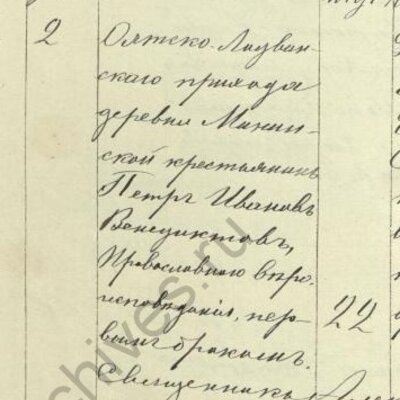 2
Оятско-Ладван-
скаго прихода
деревни Минин-
ской крестьянинъ
Петръ Ивановъ
Венедиктовъ,
Православнаго вѣро-
исповѣданія, пер-
22
вымъ бракомъ.
Священника